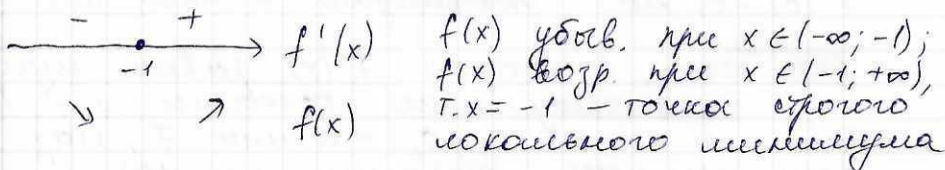 - + f'(x) f(x) убыв. при x ∈ (-∞; -1);
-1 f(x) возр. при x ∈ (-1; +∞),
↘ ↗ f(x) т. x = -1 – точка строгого
локального минимума